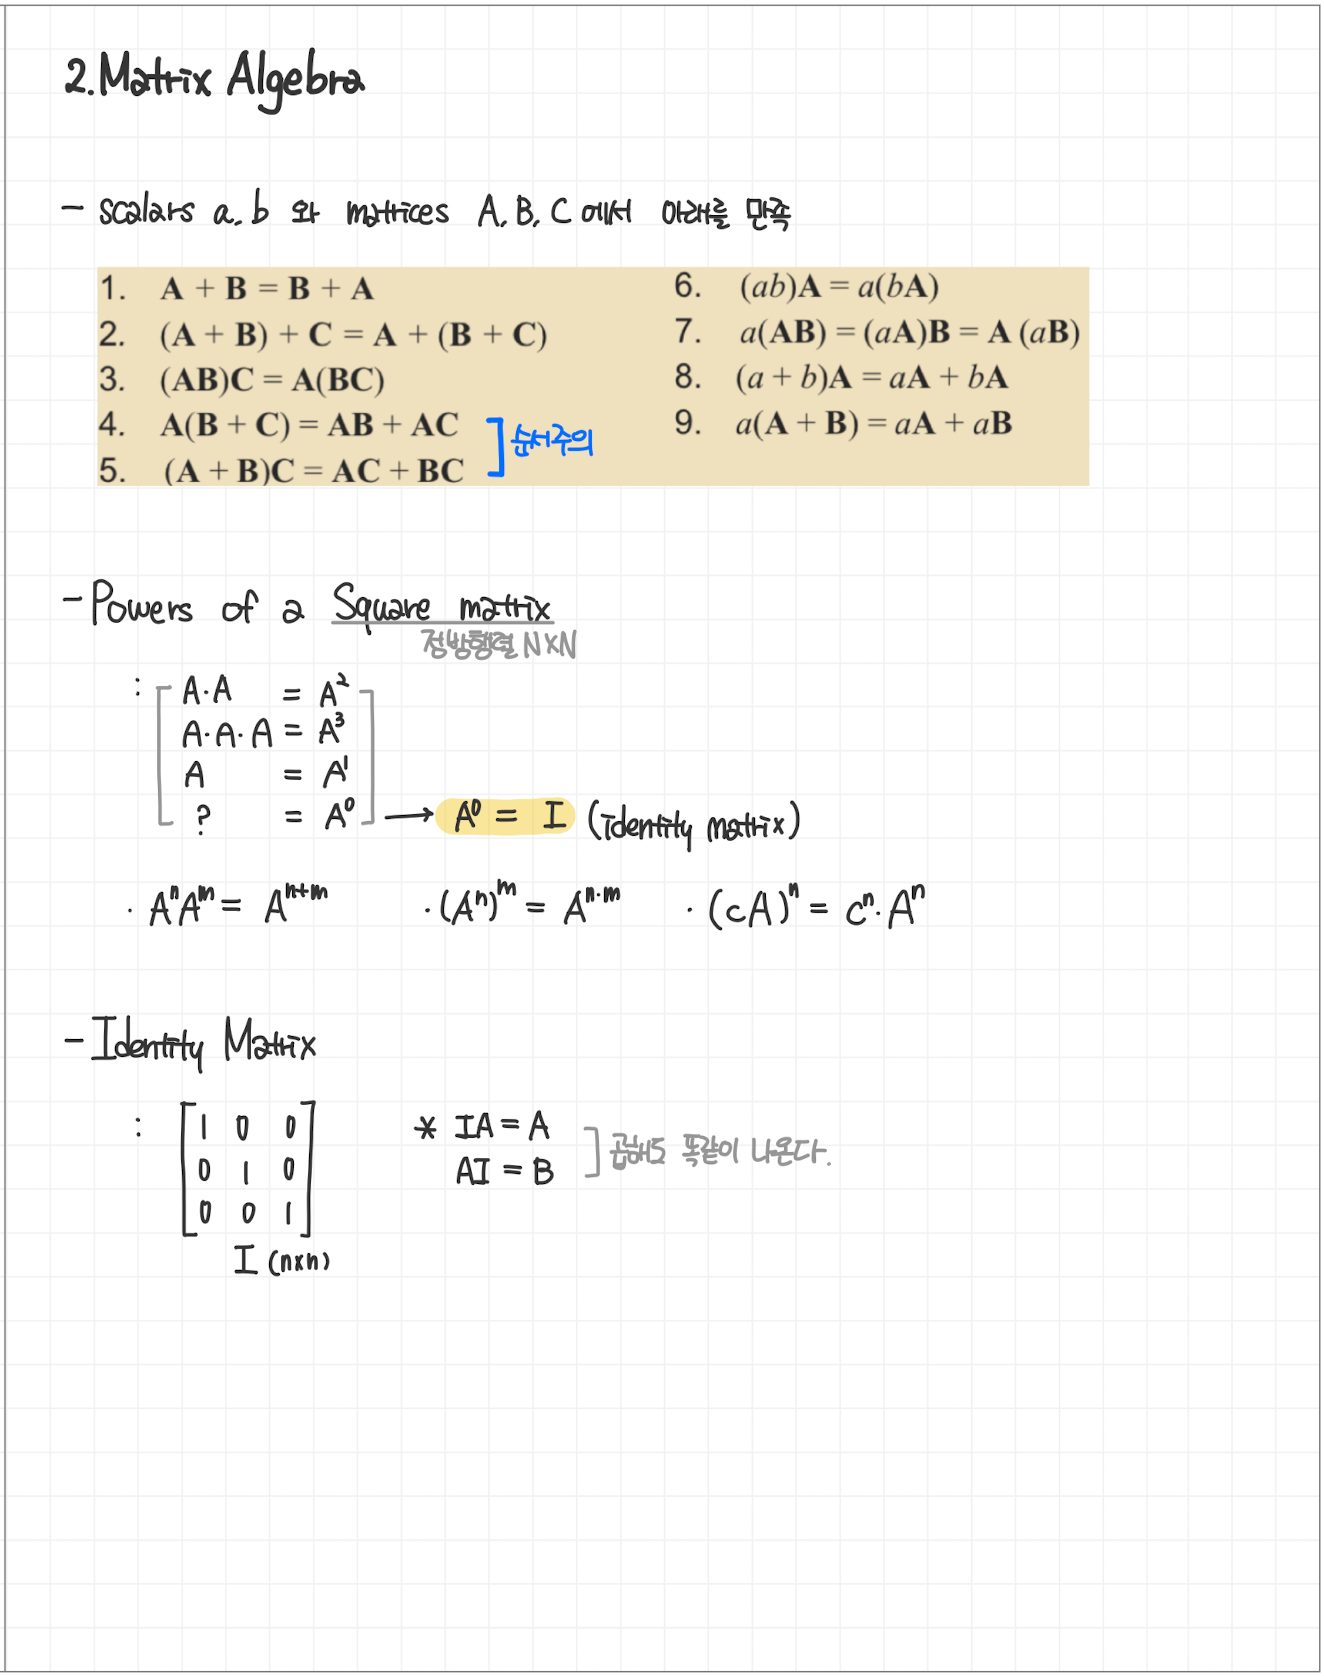 2. Matrix Algebra
- scalars a, b 와 matrices A, B, C 에서 아래를 만족
1. A + B = B + A
2. (A + B) + C = A + (B + C)
3. (AB)C = A(BC)
4. A(B + C) = AB + AC
5. (A + B)C = AC + BC
순서주의
6. (ab)A = a(bA)
7. a(AB) = (aA)B = A (aB)
8. (a + b)A = aA + bA
9. a(A + B) = aA + aB
- Powers of a Square matrix
정방행렬 N×N
: A·A = A²
A·A·A = A³
A = A¹
? = A⁰ → A⁰ = I (identity matrix)
· AⁿAᵐ = Aⁿ⁺ᵐ · (Aⁿ)ᵐ = Aⁿ·ᵐ · (cA)ⁿ = cⁿ·Aⁿ
- Identity Matrix
: 1 0 0
0 1 0
0 0 1
I (n×n)
* IA = A
AI = B
곱해도 똑같이 나온다.